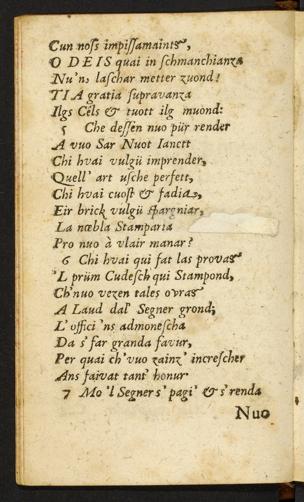 Cun noſs impiſſamaints,
O DEIS quai in ſchmanchianza
Nu'ns laſchar metter zuond?
TIA gratia ſupravanza
Ilgs Cêls & tuott ilg muond:
5 Che deſſen nuo pür render
A vuo Sar Nuot Ianett
Chi hvai vulgü imprender,
Quell' art uſche perfett,
Chi hvai cuoſt & fadia,
Eir brick vulgü ſpargniar,
La nœbla Stamparia
Pro nuo à vlair manar?
6 Chi hvai qui fat las provas
'L prüm Cudeſch qui Stampond,
Ch'nuo vezen tales ovras
A Laud dal' Segner grond;
L'offici 'ns admoneſcha
Da s'far granda favur,
Per quai ch'vuo zainz' increſcher
Ans faivat tant' honur
7 Mo 'l Segner s' pagi' & s'renda
Nuo